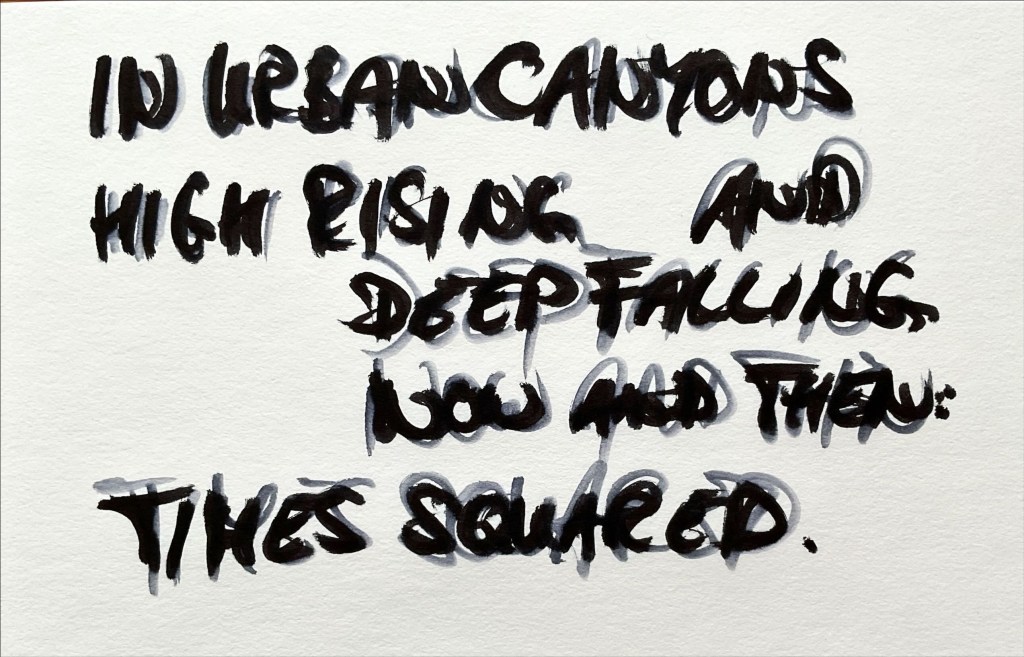 IN URBAN CANYONS
HIGH RISING AND
DEEP FALLING,
NOW AND THEN:
TIMES SQUARED.